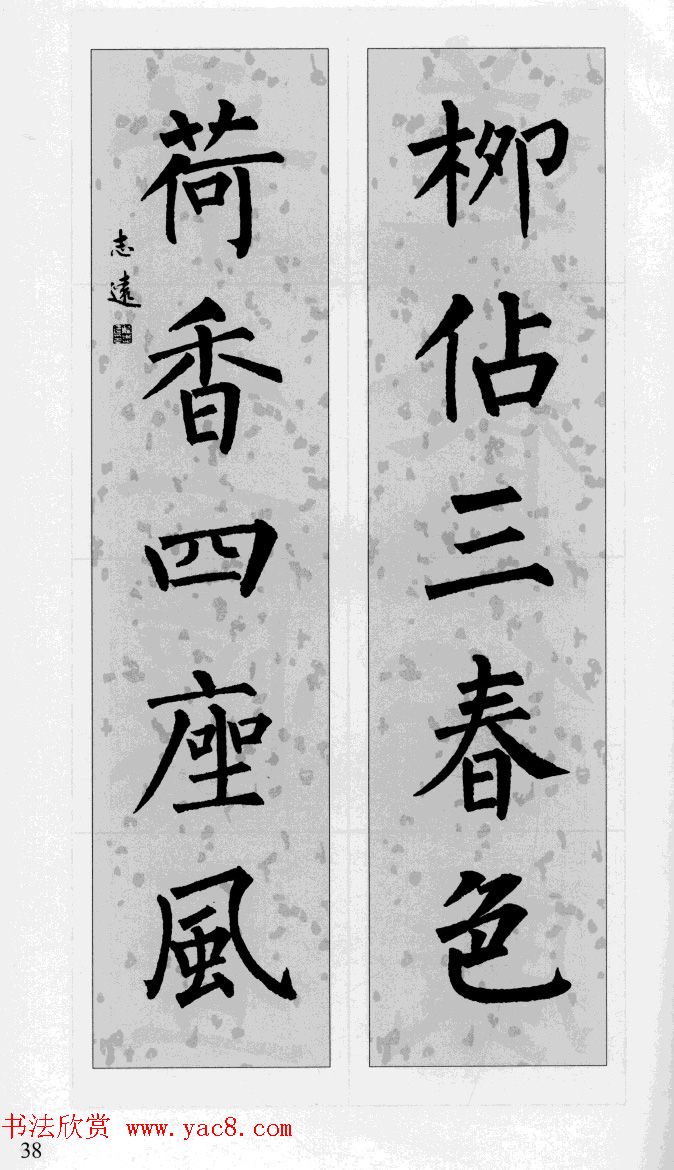 柳佔三春色
荷香四座風
志遠
书法欣赏 www.yac8.com
38